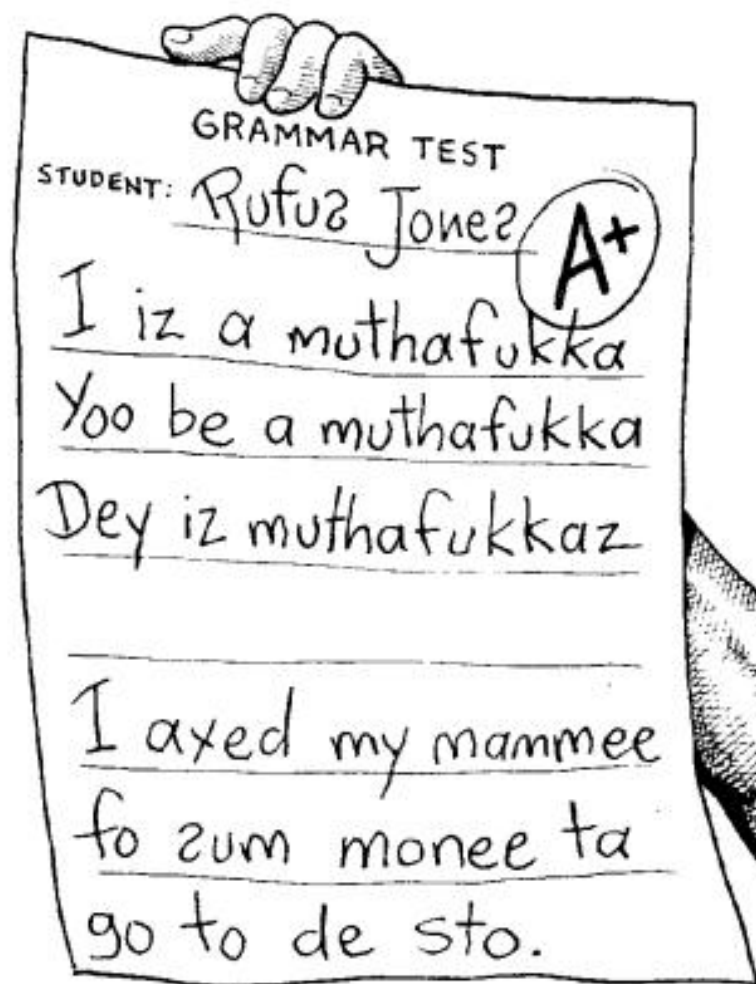 GRAMMAR TEST
STUDENT: Rufus Jones
A+
I iz a muthafukka
Yoo be a muthafukka
Dey iz muthafukkaz
I axed my mammee
fo sum monee ta
go to de sto.